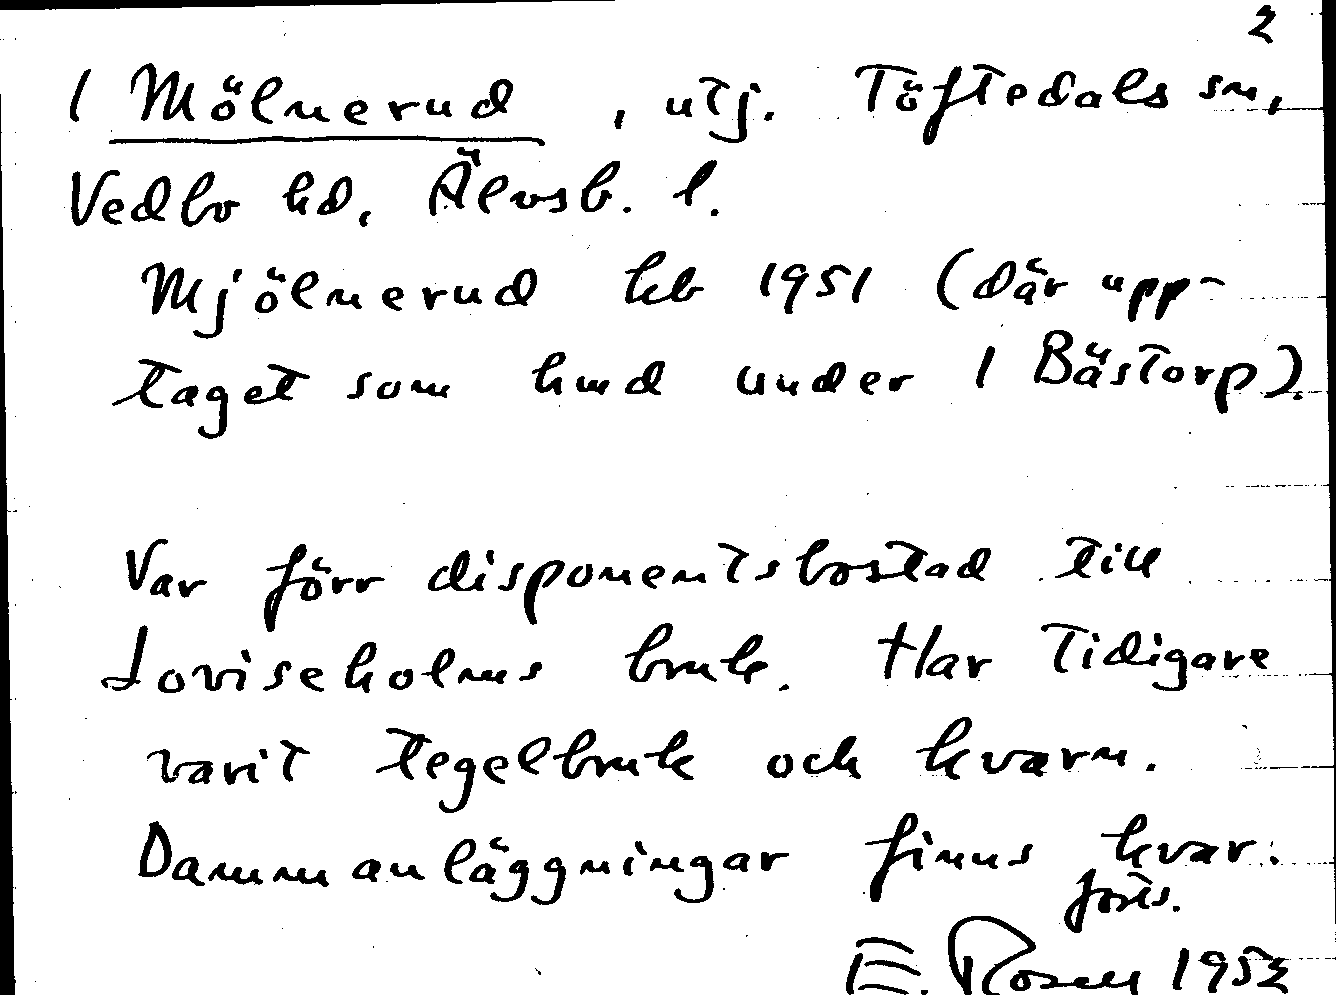 2
1 Mölnerud, utj. Töftedals sn,
Vedbo hd, Älvsb. l.
Mjölnerud kb 1951 (där upp-
taget som hmd under 1 Bästorp).
Var förr disponentsbostad till
Loviseholms bruk. Har tidigare
varit tegelbruk och kvarn.
Dammanläggningar finns kvar.
forts.
E. Rosell 1952